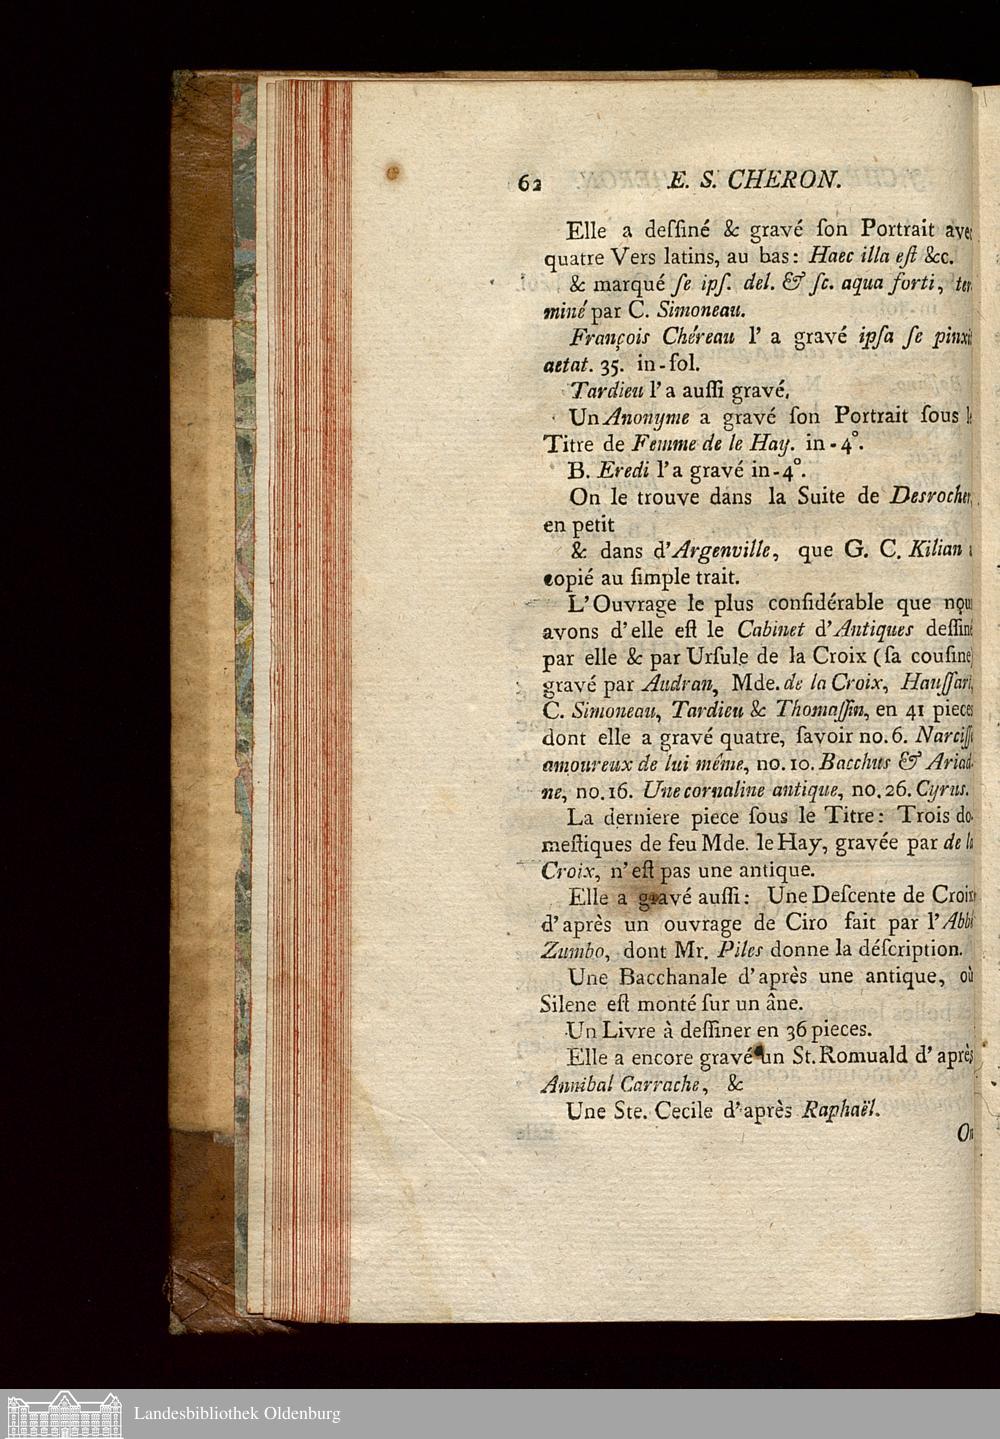 62 E. S. CHERON.
Elle a deſſiné & gravé ſon Portrait avec
quatre Vers latins, au bas: Haec illa eſt &c.
& marqué ſe ipſ. del. & ſc. aqua forti, ter
miné par C. Simoneau.
François Chéreau l' a gravé ipſa ſe pinxit
aetat. 35. in-fol.
Tardieu l'a auſſi gravé.
Un Anonyme a gravé ſon Portrait ſous le
Titre de Femme de le Hay. in-4°.
B. Eredi l'a gravé in-4°.
On le trouve dans la Suite de Desrocher,
en petit
& dans d'Argenville, que G. C. Kilian
copié au ſimple trait.
L'Ouvrage le plus conſidérable que nous
avons d'elle eſt le Cabinet d'Antiques deſſiné
par elle & par Urſule de la Croix (ſa couſine)
gravé par Audran, Mde. de la Croix, Hauſſart,
C. Simoneau, Tardieu & Thomaſſin, en 41 pieces
dont elle a gravé quatre, ſavoir no. 6. Narciſſe
amoureux de lui même, no. 10. Bacchus & Ariad-
ne, no. 16. Une cornaline antique, no. 26. Cyrus.
La derniere piece ſous le Titre: Trois do-
meſtiques de feu Mde. le Hay, gravée par de la
Croix, n'eſt pas une antique.
Elle a gravé auſſi: Une Deſcente de Croix
d'après un ouvrage de Ciro fait par l'Abbé
Zumbo, dont Mr. Piles donne la déſcription.
Une Bacchanale d'après une antique, où
Silene eſt monté ſur un âne.
Un Livre à deſſiner en 36 pieces.
Elle a encore gravé un St. Romuald d'après
Annibal Carrache, &
Une Ste. Cecile d'après Raphaël.
On
Landesbibliothek Oldenburg